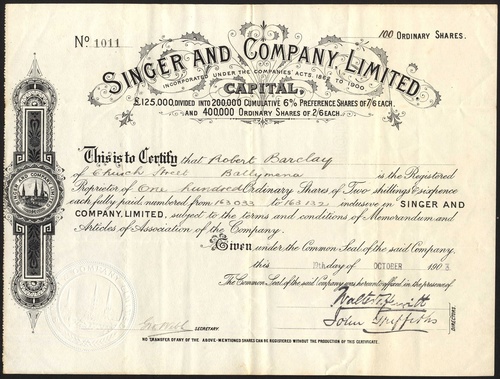 No 1011
100 ORDINARY SHARES.
SINGER AND COMPANY, LIMITED.
INCORPORATED UNDER THE COMPANIES' ACTS, 1862 TO 1900
CAPITAL,
£125,000, DIVIDED INTO 200,000 CUMULATIVE 6% PREFERENCE SHARES OF 7/6 EACH,
AND 400,000 ORDINARY SHARES OF 2/6 EACH.
This is to Certify that Robert Barclay
of Church Street Ballymena is the Registered
Proprietor of One hundred Ordinary Shares of Two shillings & sixpence
each, fully paid, numbered from 163033 to 163132 inclusive in SINGER AND
COMPANY, LIMITED, subject to the terms and conditions of Memorandum and
Articles of Association of the Company.
Given under the Common Seal of the said Company
this 19th day of OCTOBER 1903
The Common Seal of the said Company was hereunto affixed in the presence of
John Griffiths
DIRECTORS
SECRETARY.
NO TRANSFER OF ANY OF THE ABOVE-MENTIONED SHARES CAN BE REGISTERED WITHOUT THE PRODUCTION OF THIS CERTIFICATE.
SINGER AND COMPANY LIMITED